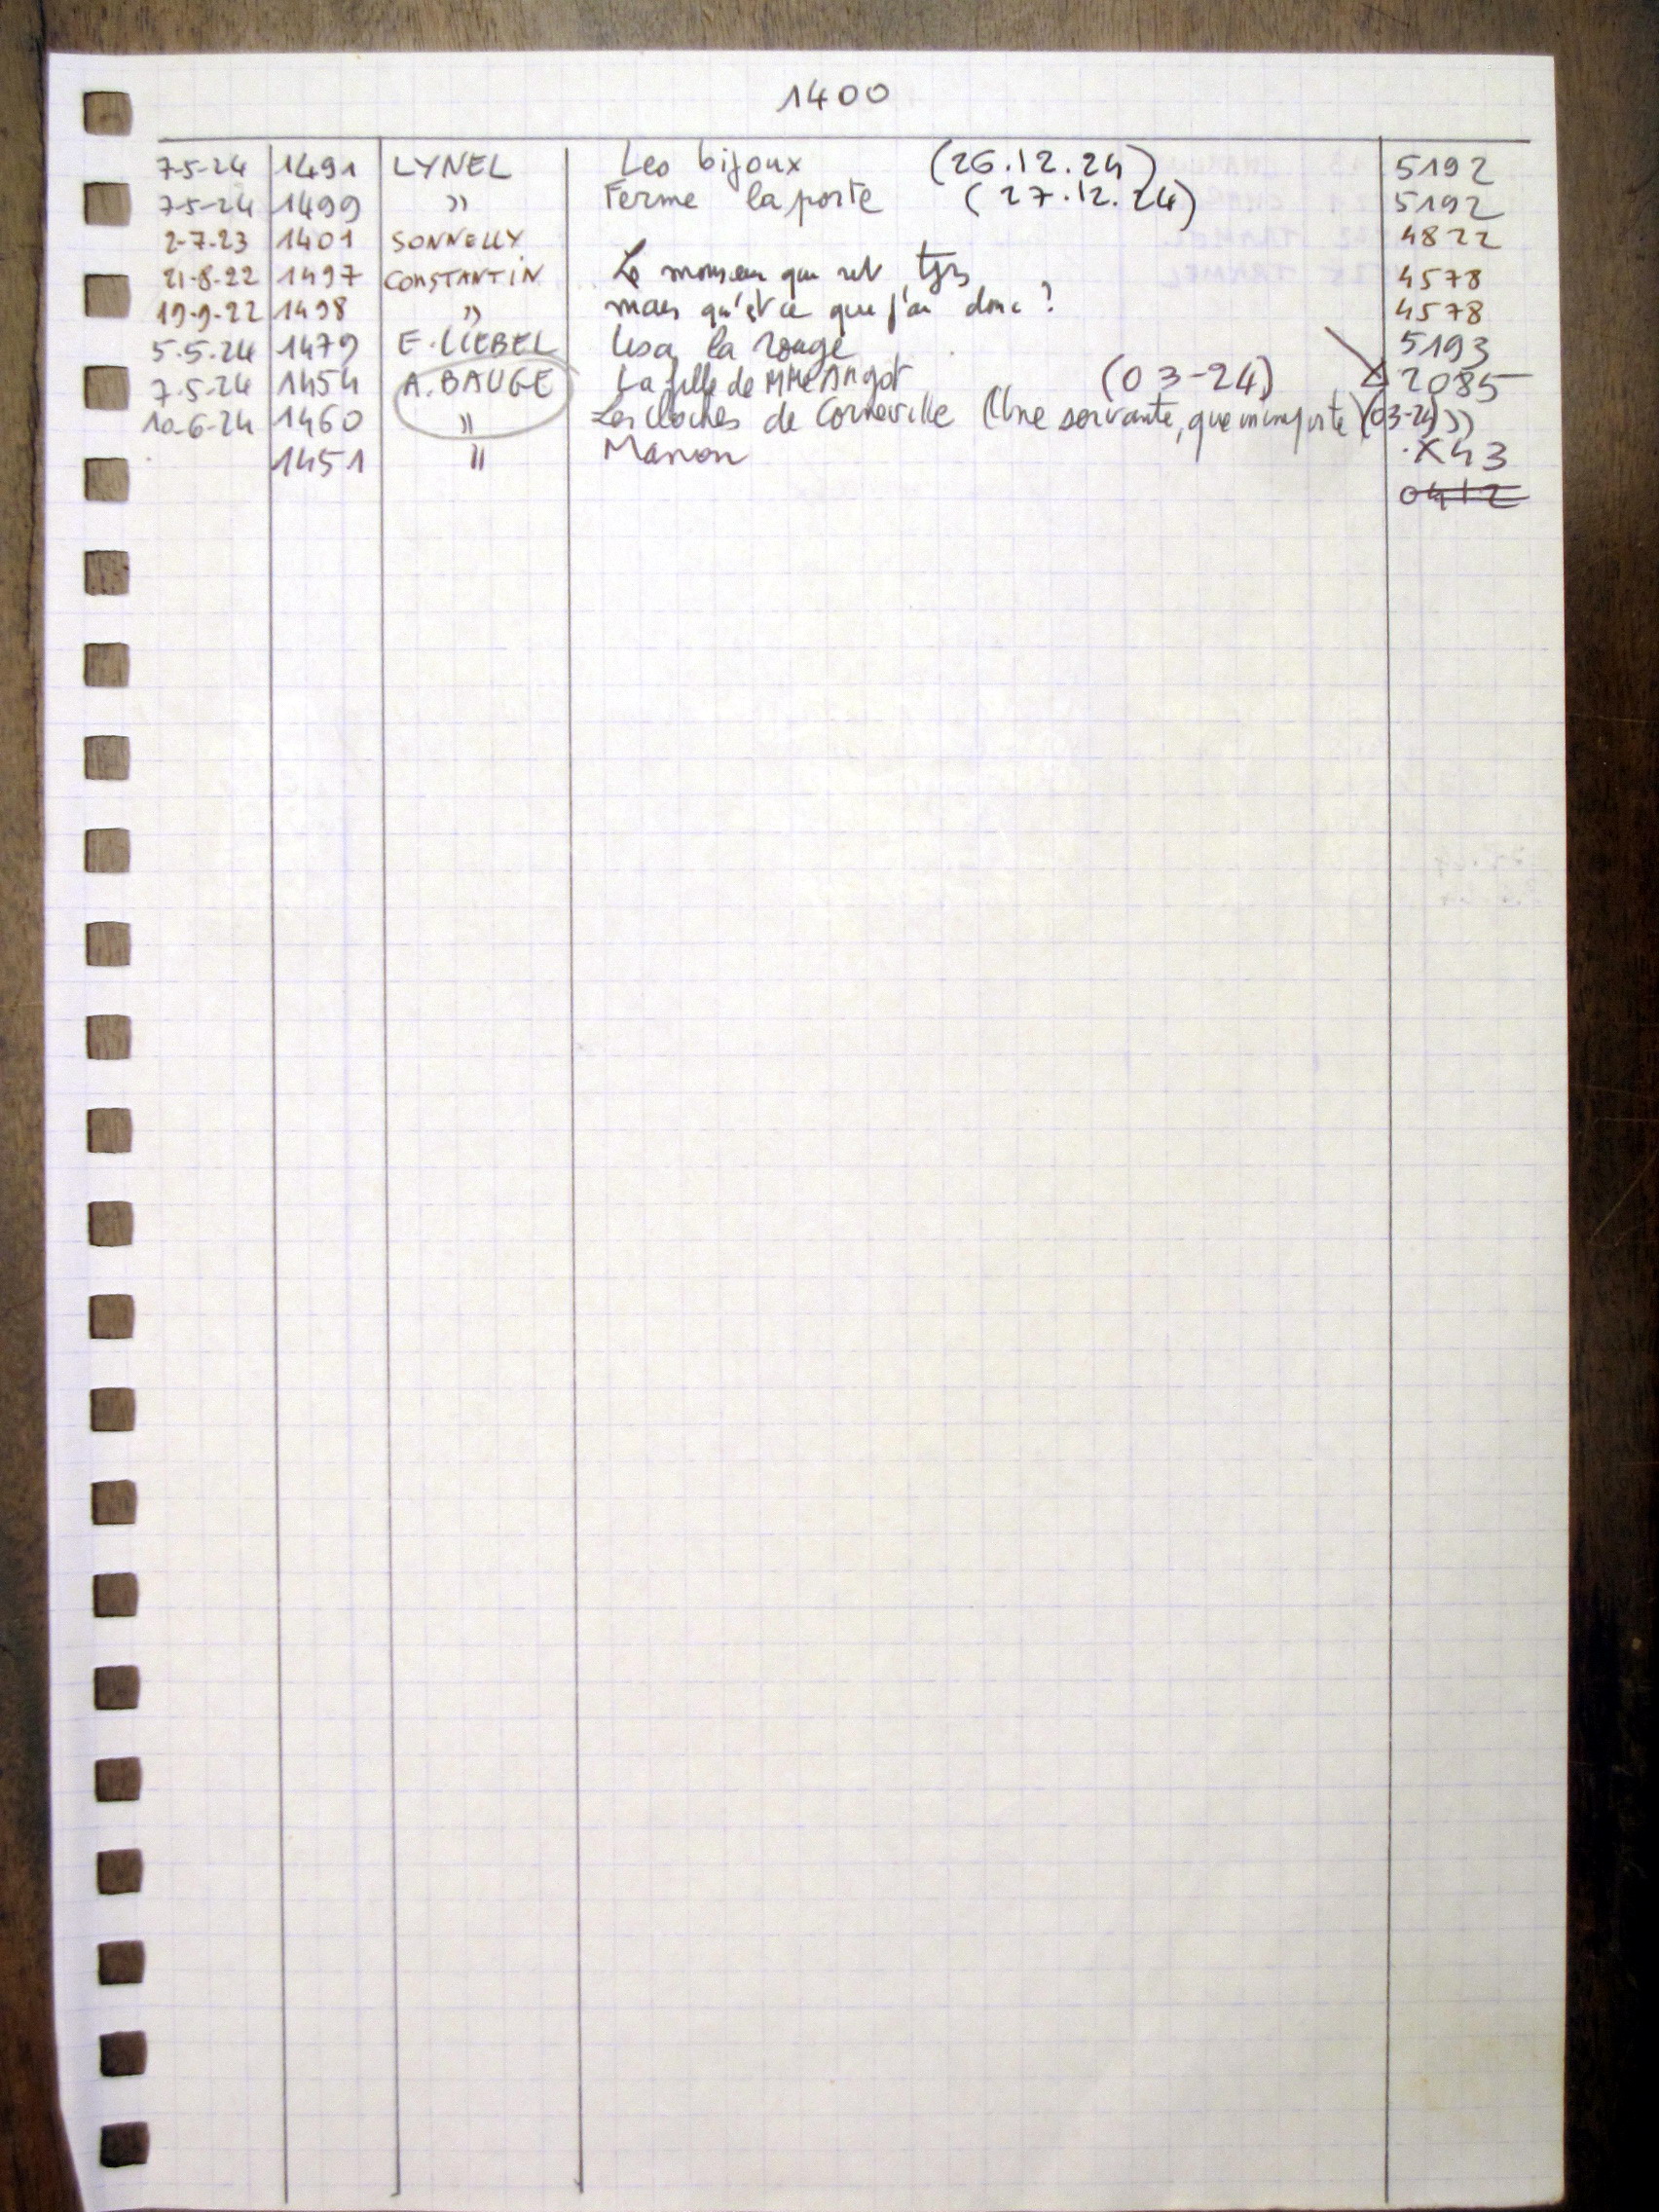 1400
7-5-24 1491 LYNEL Les bijoux (26.12.24) 5192
7-5-24 1499 " Ferme la porte (27.12.24) 5192
2-7-23 1401 SONNELLY 4822
21-8-22 1497 CONSTANTIN Le monsieur qui rit tjrs 4578
19-9-22 1498 " mais qu'est ce que j'ai donc ? 4578
5.5.24 1479 E. LIEBEL Lisa la rouge 5193
7.5-24 1454 A. BAUGE La fille de MMe Angot (03-24) 2085
10-6-24 1460 " Les cloches de Corneville (Une servante, que m'importe) (03-24) "
1451 " Manon X43
0412